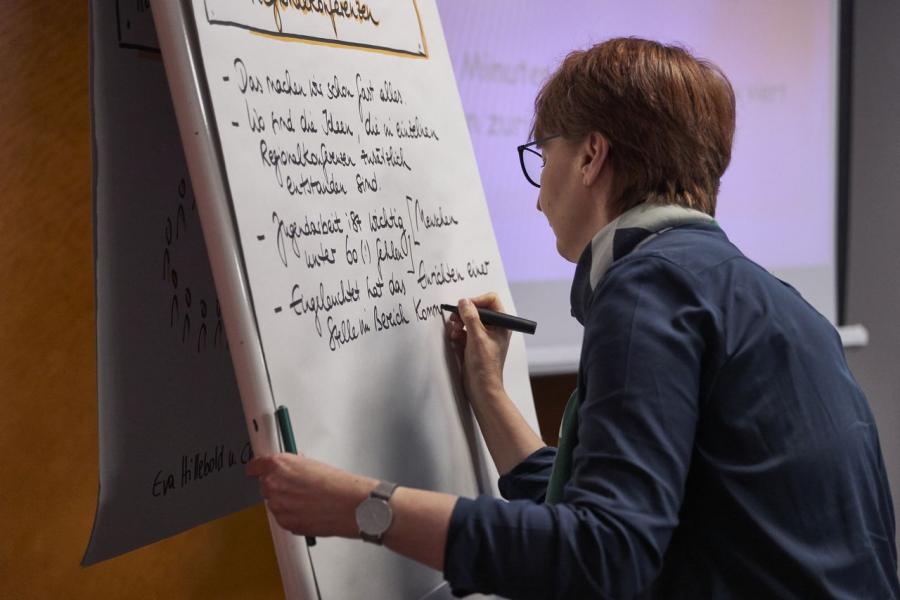 Regionalkonferenzen
- Das machen wir schon fast alles.
- Wo sind die Ideen, die in einzelnen
Regionalkonferenzen
entstanden sind.
- Jugendarbeit ist wichtig [Menschen
unter 60 (!) fehlen]
- Eingeleuchtet hat das Einrichten einer
Stelle im Bereich Komm
Eva Hillebold u. C
Minuten